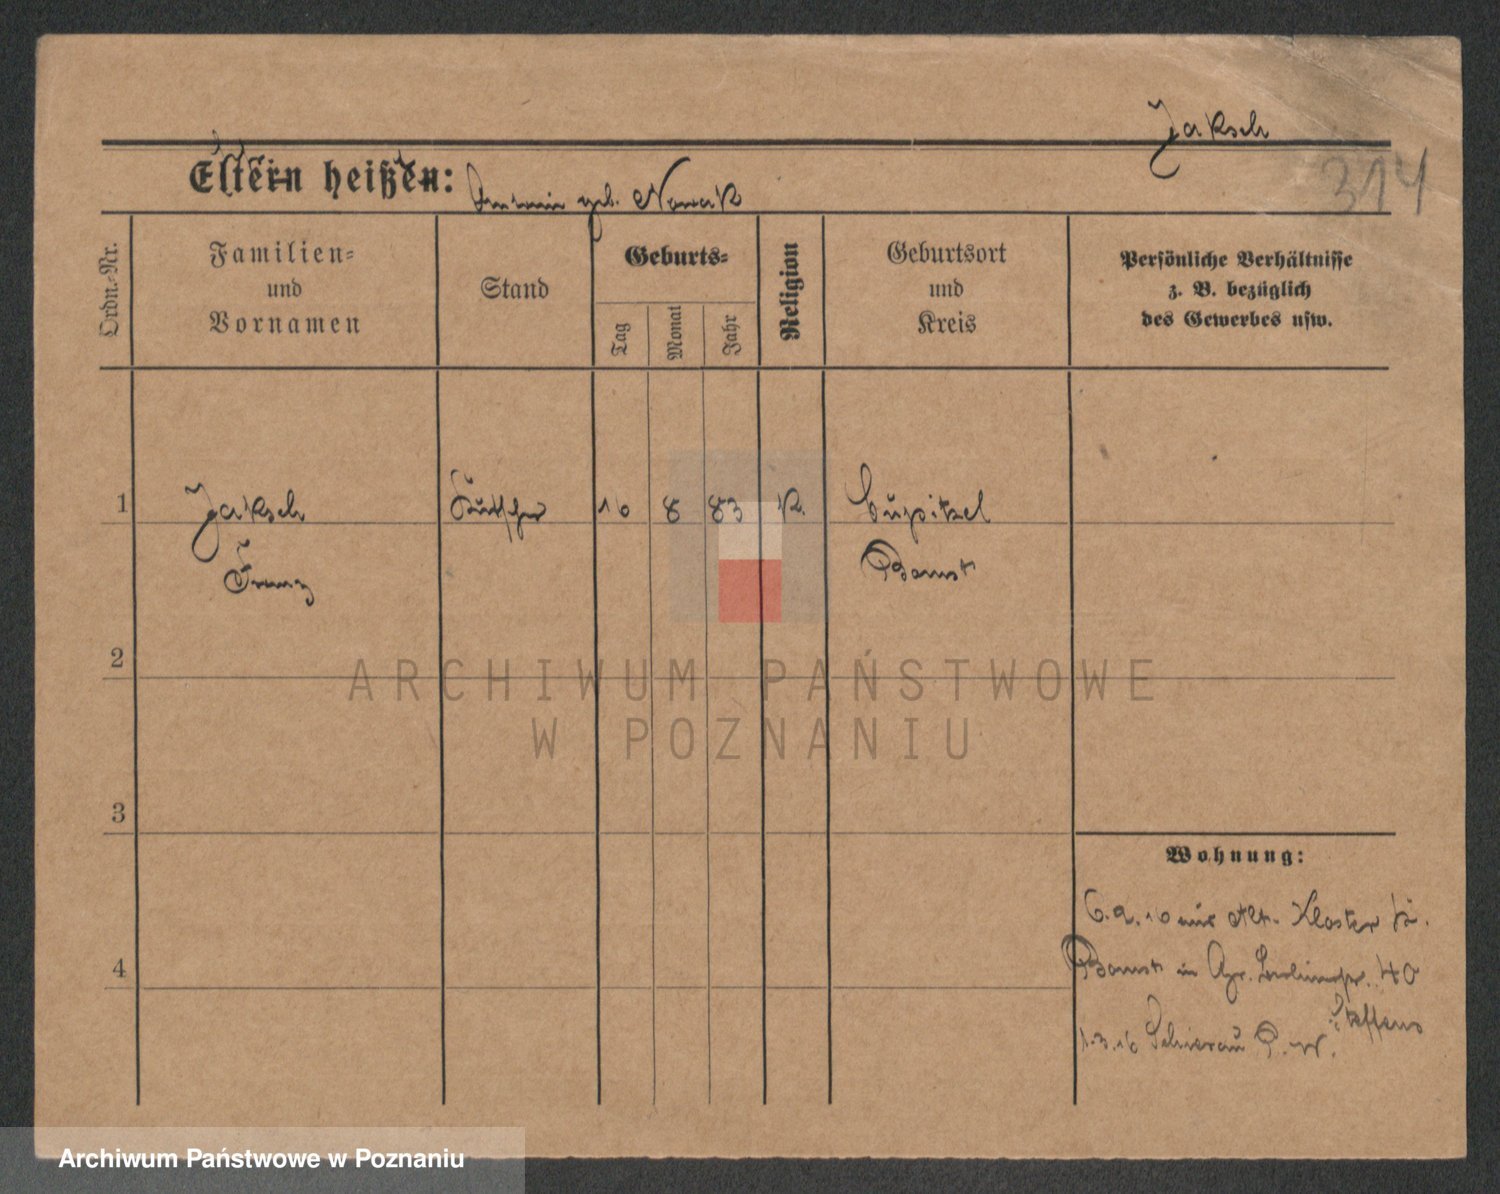 Jaksch
314
Eltern heißen: geb. Nowak
Ordn.-Nr.
Familien=
und
Vornamen
Stand
Geburts=
Tag
Monat
Jahr
Religion
Geburtsort
und
Kreis
Persönliche Verhältnisse
z. B. bezüglich
des Gewerbes usw.
1 Jaksch Kutscher 16 8 83 K. Lupitzel
Franz Bomst
2
3
4
Wohnung:
6.2.16 aus Alt. Kloster K.
Bomst in 40
Steffens
1.3.16 P. W.
ARCHIWUM PAŃSTWOWE
W POZNANIU
Archiwum Państwowe w Poznaniu